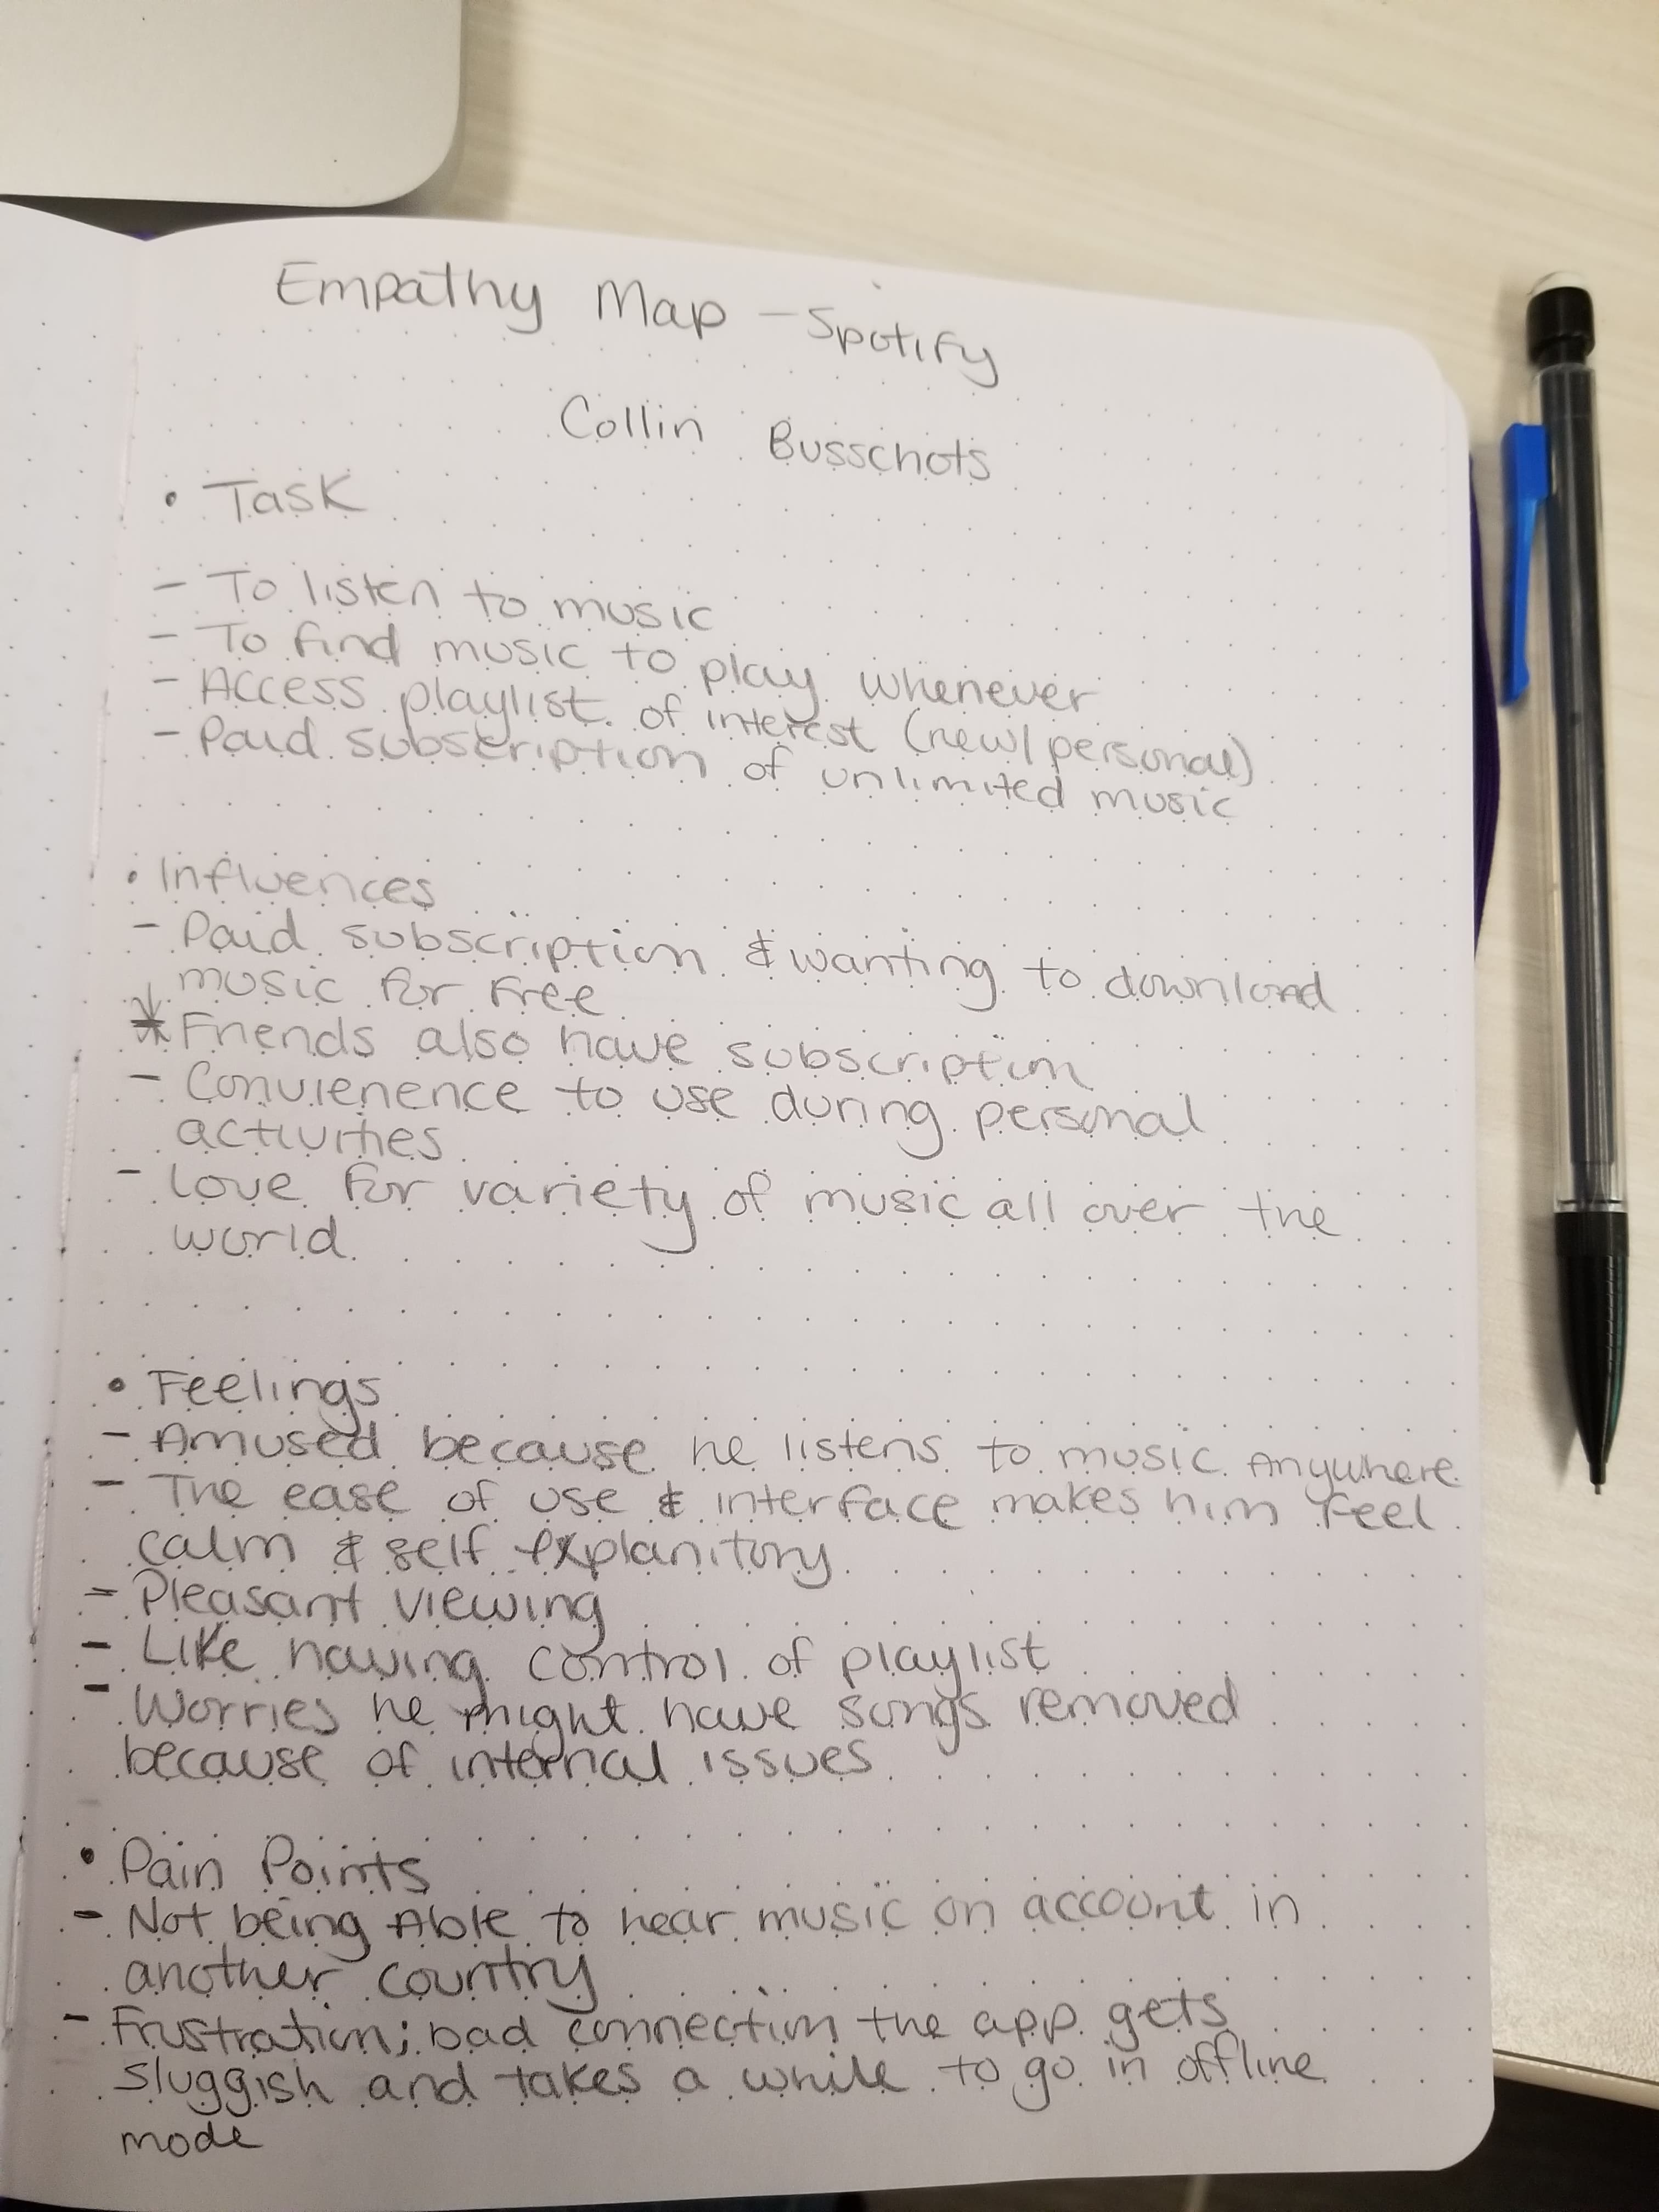 Empathy Map - Spotify
Collin Busschots
• Task
- To listen to music
- To find music to play whenever
- Access playlist of interest (new/personal)
- Paid subscription of unlimited music
• Influences
- Paid subscription & wanting to download
music for free
* Friends also have subscription
- Convienence to use during personal
activities
- Love for variety of music all over the
world
• Feelings
- Amused because he listens to music Anywhere
- The ease of use & interface makes him feel
calm & self explanitory
- Pleasant viewing
- Like having control of playlist
- Worries he might have songs removed
because of internal issues
• Pain Points
- Not being Able to hear music on account in
another country
- Frustration; bad connection the app gets
sluggish and takes a while to go in offline
mode